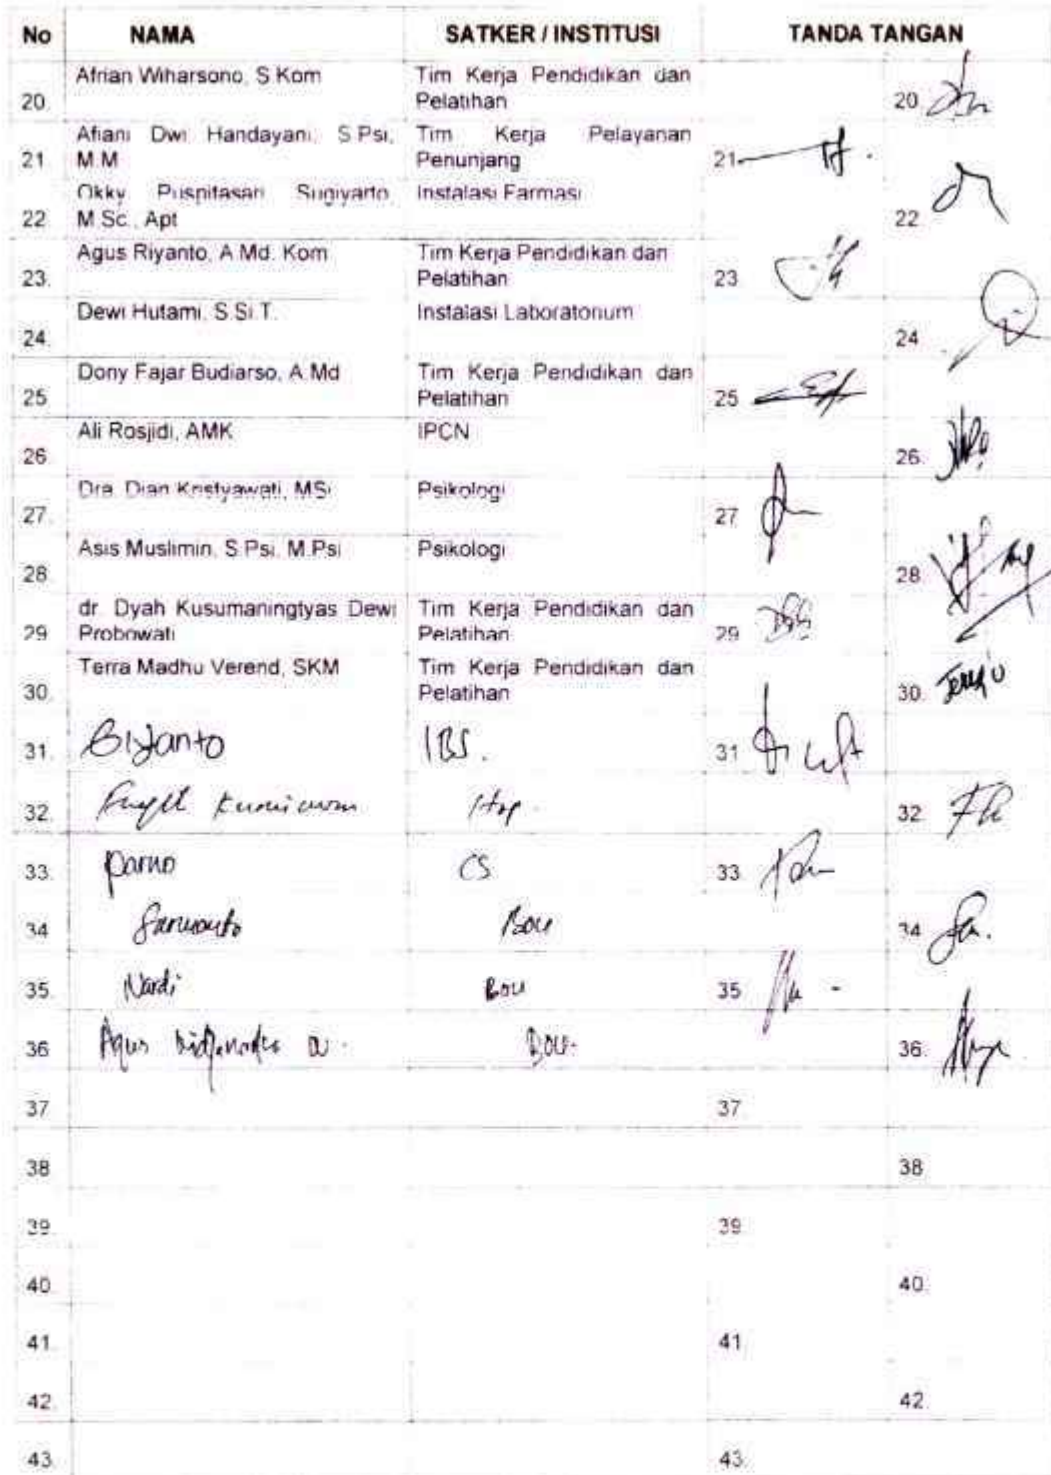 No NAMA SATKER / INSTITUSI TANDA TANGAN
20. Afrian Wiharsono, S.Kom Tim Kerja Pendidikan dan 20.
Pelatihan
21 Afiani Dwi Handayani, S.Psi, Tim Kerja Pelayanan 21
M.M Penunjang
22 Okky Puspitasari Sugiyarto, Instalasi Farmasi 22
M.Sc., Apt
23. Agus Riyanto, A.Md. Kom Tim Kerja Pendidikan dan 23
Pelatihan
24. Dewi Hutami, S.Si.T. Instalasi Laboratorium 24
25 Dony Fajar Budiarso, A.Md Tim Kerja Pendidikan dan 25
Pelatihan
26. Ali Rosjidi, AMK IPCN 26.
27. Dra. Dian Kristyawati, MSi Psikologi 27
28 Asis Muslimin, S.Psi, M.Psi Psikologi 28
29 dr. Dyah Kusumaningtyas Dewi Tim Kerja Pendidikan dan 29
Probowati Pelatihan
30. Terra Madhu Verend, SKM Tim Kerja Pendidikan dan 30.
Pelatihan
31. IBS. 31
32. 32
33. Parno CS 33
34 34
35 Nardi 35
36 Agus 36.
37 37
38 38
39 39
40 40.
41 41
42 42
43. 43.